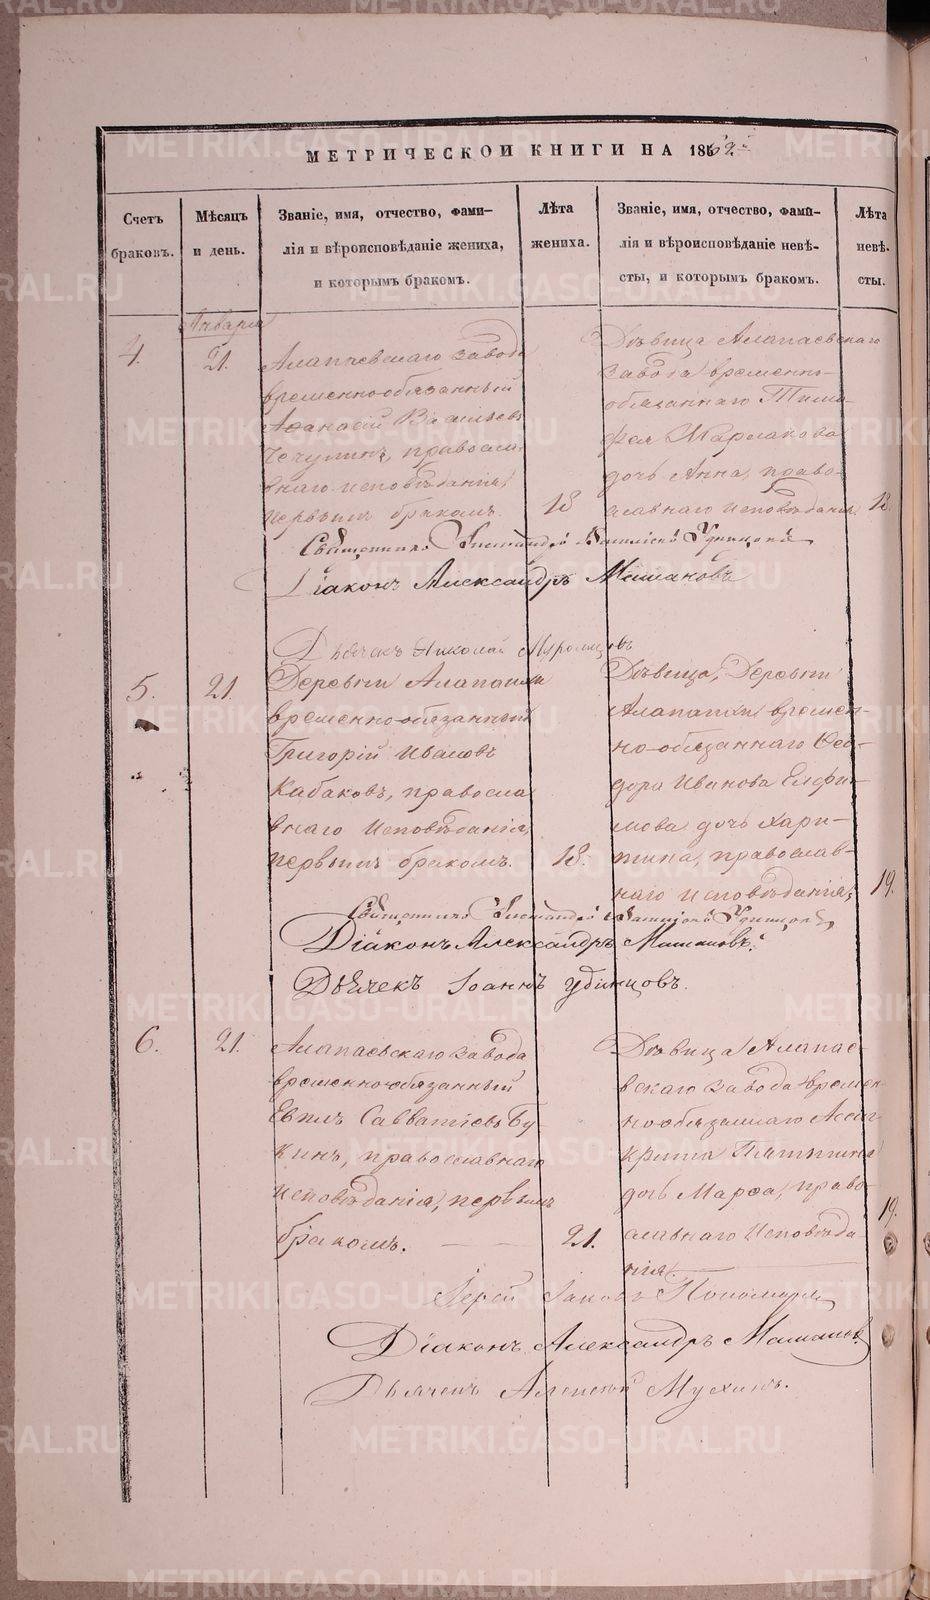 МЕТРИЧЕСКОЙ КНИГИ НА 186
Счетъ браковъ.
Мѣсяцъ и день.
Званіе, имя, отчество, фами-
лія и вѣроисповѣданіе жениха,
и которымъ бракомъ.
Лѣта
жениха.
Званіе, имя, отчество, фами-
лія и вѣроисповѣданіе невѣ-
сты, и которымъ бракомъ.
Лѣта
невѣ-
сты.
Января
4.
21.
Алапаевскаго завода
временно-обязанный
Аѳанасій Васильевъ
Чечулинъ, правосла
внаго исповѣданія,
первымъ бракомъ.
18
Дѣвица Алапаевскаго
завода временно-
обязаннаго Тимо-
фея
дочь Анна, право-
славнаго исповѣданія
18.
Священникъ Удинцовъ
Діаконъ Александръ Машановъ
Дьячекъ Николай
5.
21.
Деревни Алапаихи
временно-обязанный
Григорій Ивановъ
Кабаковъ, правосла
внаго исповѣданія,
первымъ бракомъ.
18.
Дѣвица, Деревни
Алапаихи времен-
но-обязаннаго Ѳео-
дора Иванова Елфи-
мова дочь Хари-
тина, православ-
наго исповѣданія,
19.
Священникъ Удинцовъ
Діаконъ Александръ Машановъ.
Дьячекъ Іоаннъ Удинцовъ.
6.
21.
Алапаевскаго завода
временно-обязанный
Евпилъ Савватіевъ Бу
кинъ, православнаго
исповѣданія, первымъ
бракомъ.
21.
Дѣвица Алапае-
вскаго завода времен-
но-обязаннаго Асин-
крита
дочь Марѳа, право-
славнаго исповѣда-
нія
19.
Іерей Іаковъ Пономаревъ
Діаконъ Александръ Машановъ.
Дьячекъ Алексѣй Мухинъ.
METRIKI.GASO-URAL.RU